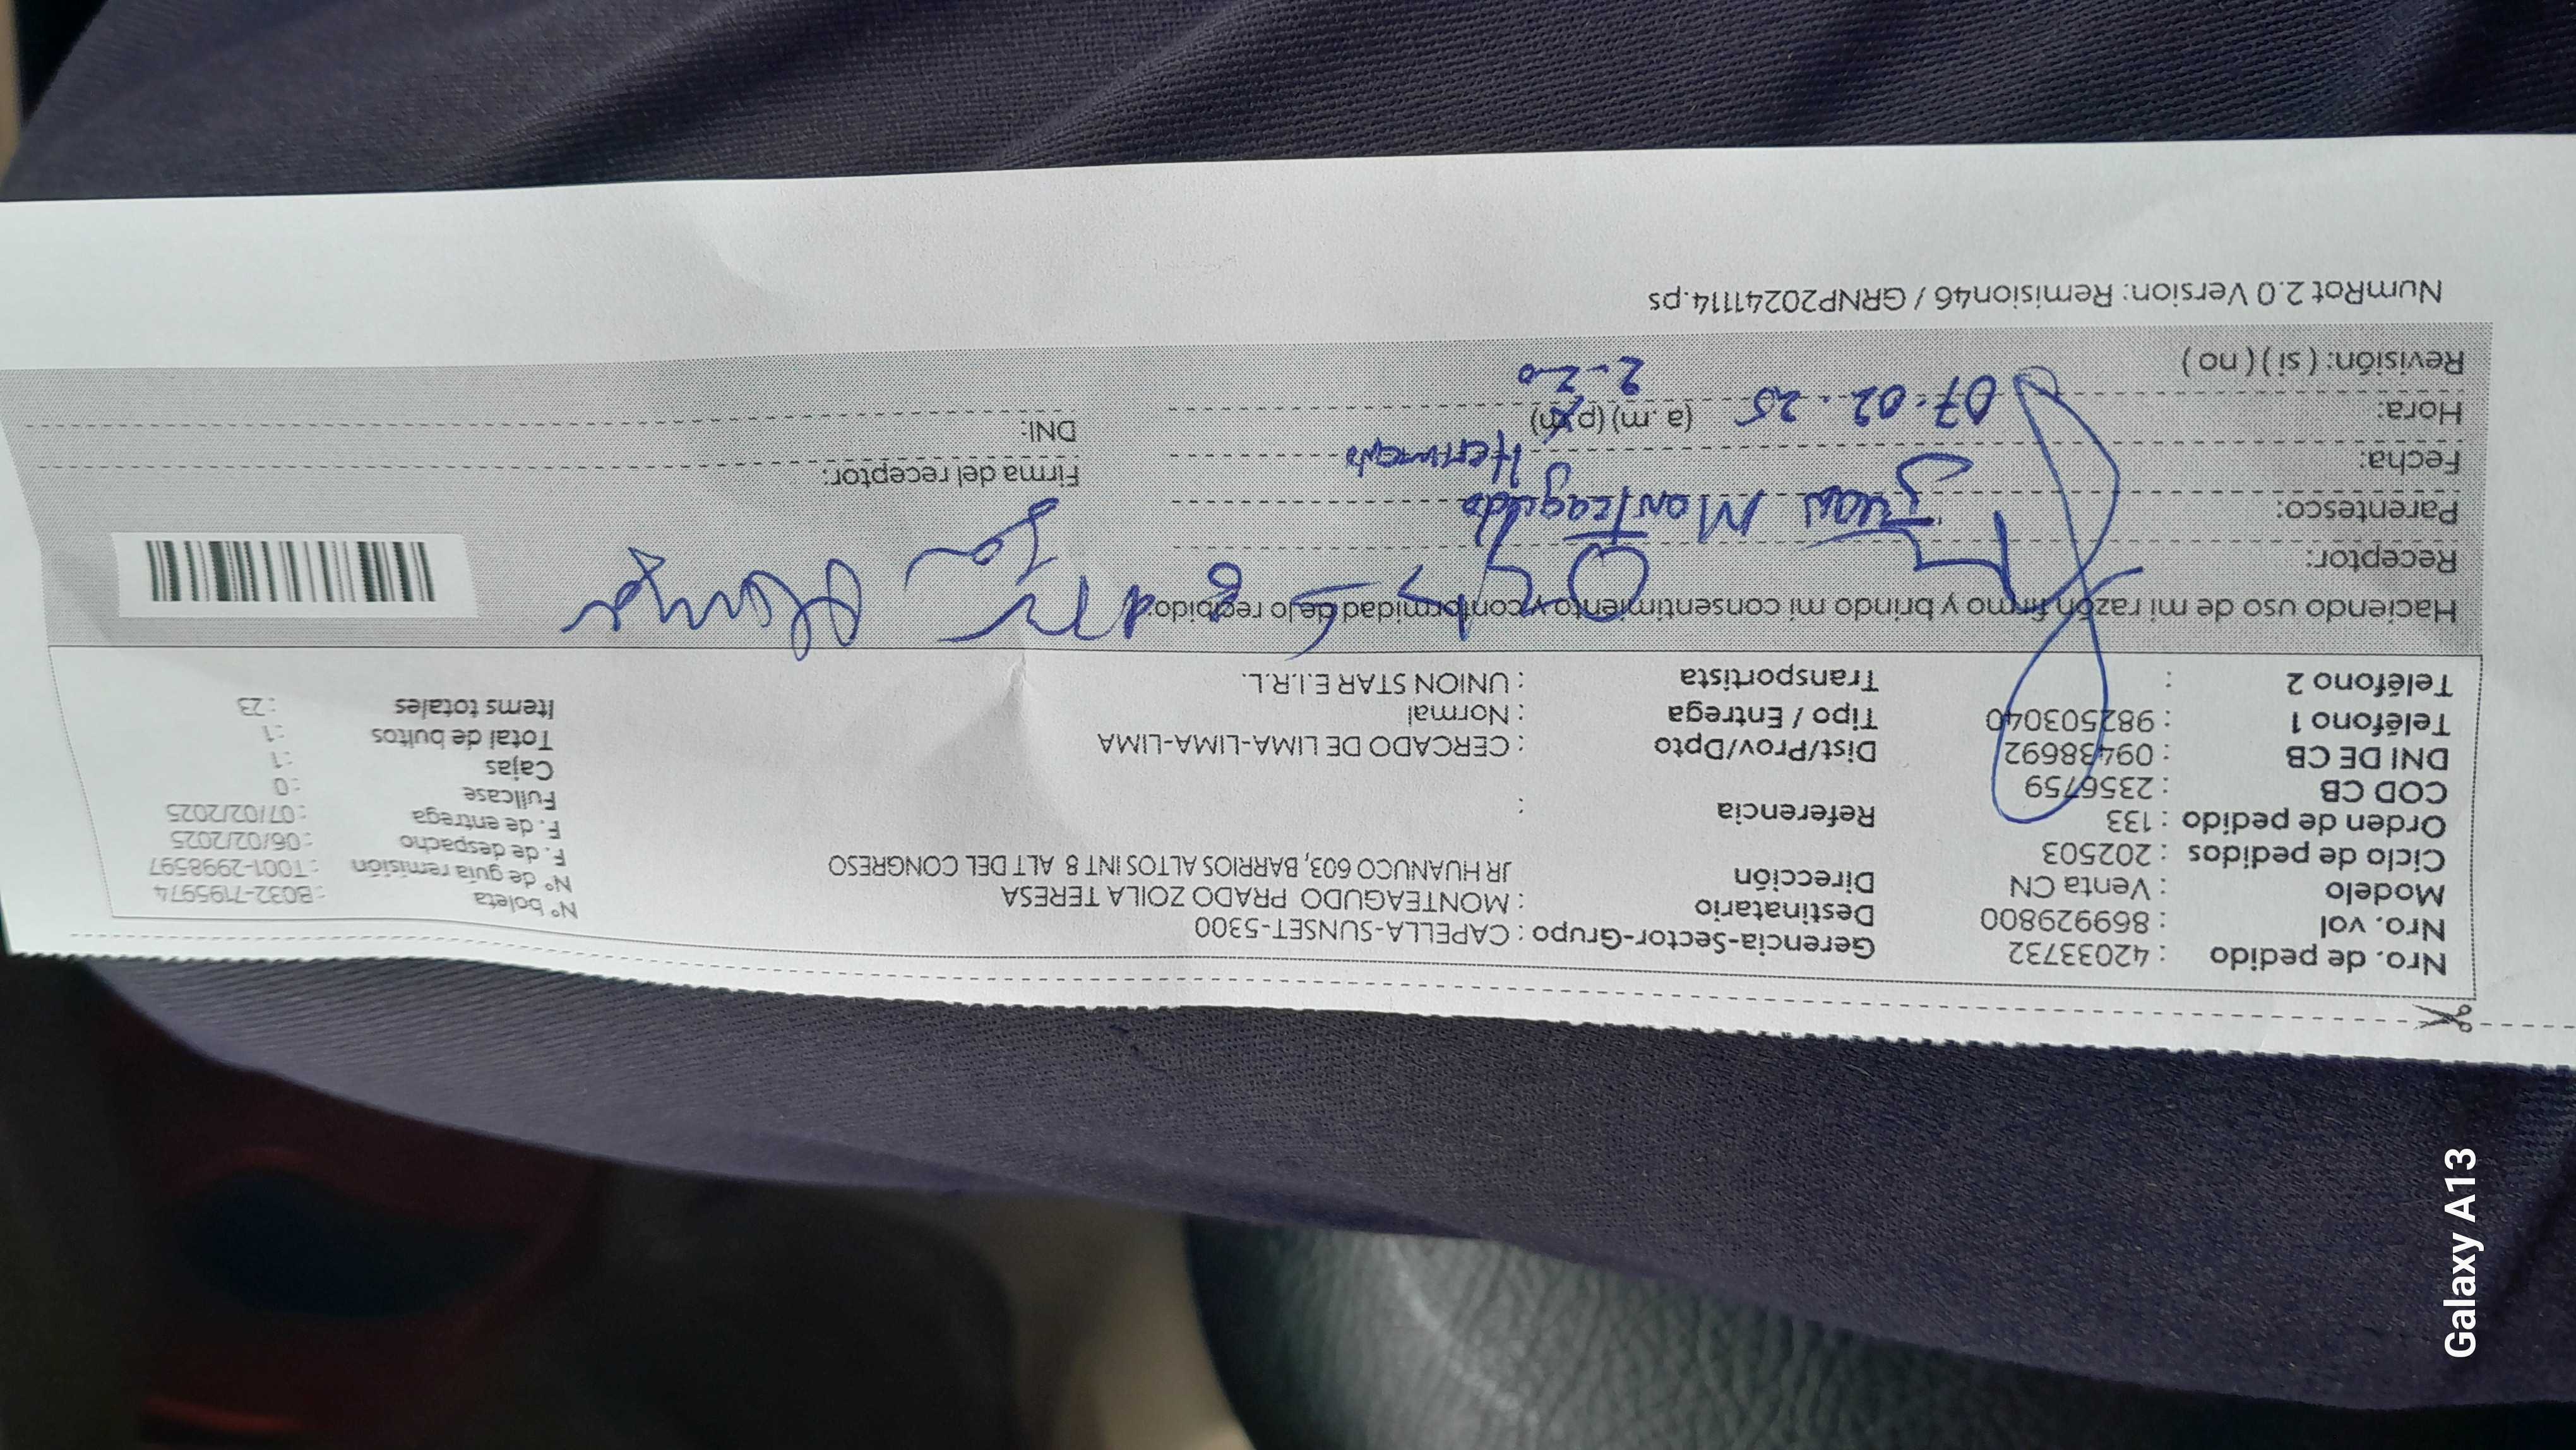 Nro. de pedido : 42033732 Gerencia-Sector-Grupo : CAPELLA-SUNSET-5300
Nro. vol : 869929800 Destinatario : MONTEAGUDO PRADO ZOILA TERESA Nº boleta : B032-7195974
Modelo : Venta CN Dirección JR HUANUCO 603, BARRIOS ALTOS INT 8 ALT DEL CONGRESO Nº de guía remisión : T001-2998597
Ciclo de pedidos : 202503 F. de despacho : 06/02/2025
Orden de pedido : 133 Referencia : F. de entrega : 07/02/2025
COD CB : 2356759 Fullcase : 0
DNI DE CB : 09438692 Dist/Prov/Dpto : CERCADO DE LIMA-LIMA-LIMA Cajas : 1
Teléfono 1 : 982503040 Tipo / Entrega : Normal Total de bultos : 1
Teléfono 2 : Transportista : UNION STAR E.I.R.L. Items totales : 23
Haciendo uso de mi razón firmo y brindo mi consentimiento y conformidad de lo recibido:
Receptor: Juan Monteagudo
Parentesco: Hermano Firma del receptor:
Fecha: 07.02.25 DNI:
Hora: (a. m) (p. m) 2.20
Revisión: ( si ) ( no )
NumRot 2.0 Version: Remision46 / GRNP20241114.ps
Galaxy A13